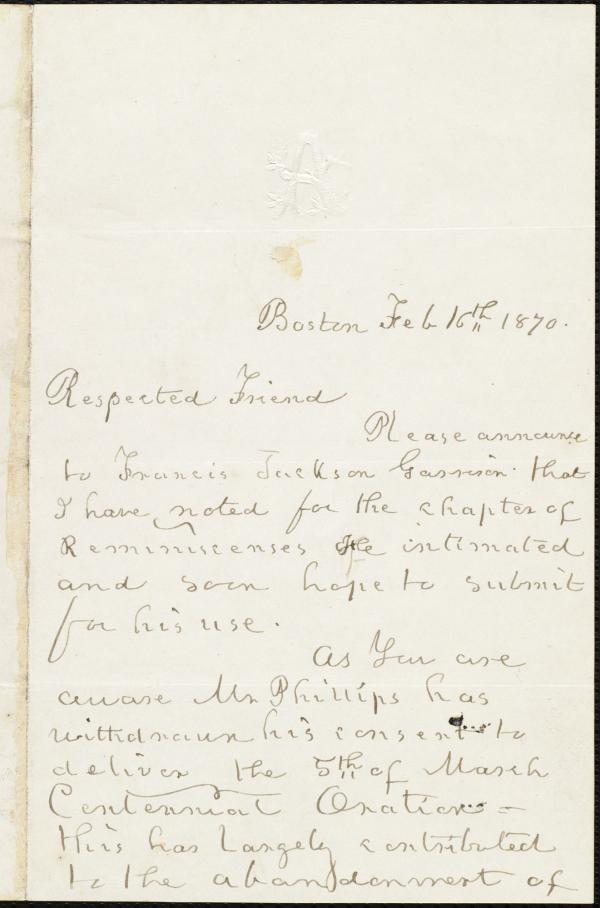 Boston Feb 16th 1870.
Respected Friend
Please announce
to Francis Jackson Garrison. that
I have noted for the chapter of
Reminiscenses He intimated
and soon hope to submit
for his use.
As You are
aware Mr Phillips has
withdrawn his consent to
deliver the 5th of March
Centennial Oration -
this has largely contributed
to the abandonment of